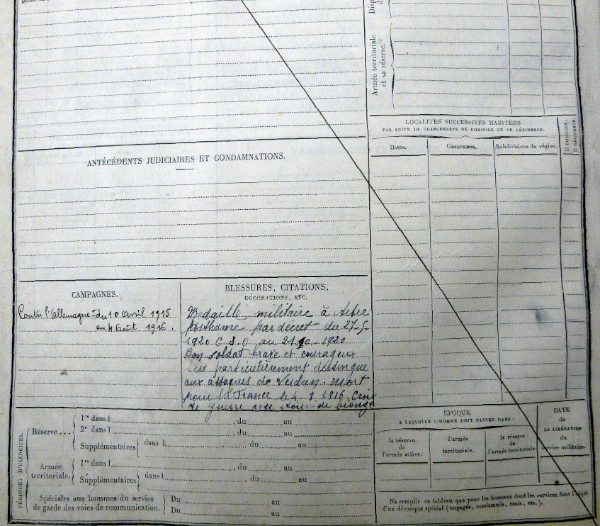 Armée territoriale
et sa réserve.
LOCALITÉS SUCCESSIVES HABITÉES
PAR SUITE DE CHANGEMENTS DE DOMICILE OU DE RÉSIDENCE.
Dates.
Communes.
Subdivisions de région.
ANTÉCÉDENTS JUDICIAIRES ET CONDAMNATIONS.
CAMPAGNES.
Contre l'Allemagne du 10 avril 1915
au 4 Août 1916.
BLESSURES, CITATIONS,
DÉCORATIONS, ETC.
Médaille militaire à titre
posthume par décret du 27-5
1920 J.O au 1920
Bon soldat brave et courageux
s'est particulièrement
aux attaques de Verdun. mort
pour la France le 4-8-1916. Croix
de guerre avec étoile de bronze
PÉRIODES D'EXERCICES.
Réserve...
1re dans l
du
au
2e dans l
du
au
Supplémentaires
dans l
du
au
du
au
Armée
territoriale.
1re dans l
du
au
Supplémentaires
dans l
du
au
du
au
Spéciales aux hommes du service
de garde des voies de communication.
Du
au
Du
au
ÉPOQUE
À LAQUELLE L'HOMME DOIT PASSER DANS :
la réserve
de
l'armée active.
l'armée
territoriale.
la réserve
de
l'armée territoriale.
DATE
de
LA LIBÉRATION
du
service militaire.
Ne remplir ce tableau que pour les hommes dont les services font l'objet
d'un décompte spécial (engagés, omis, etc.).